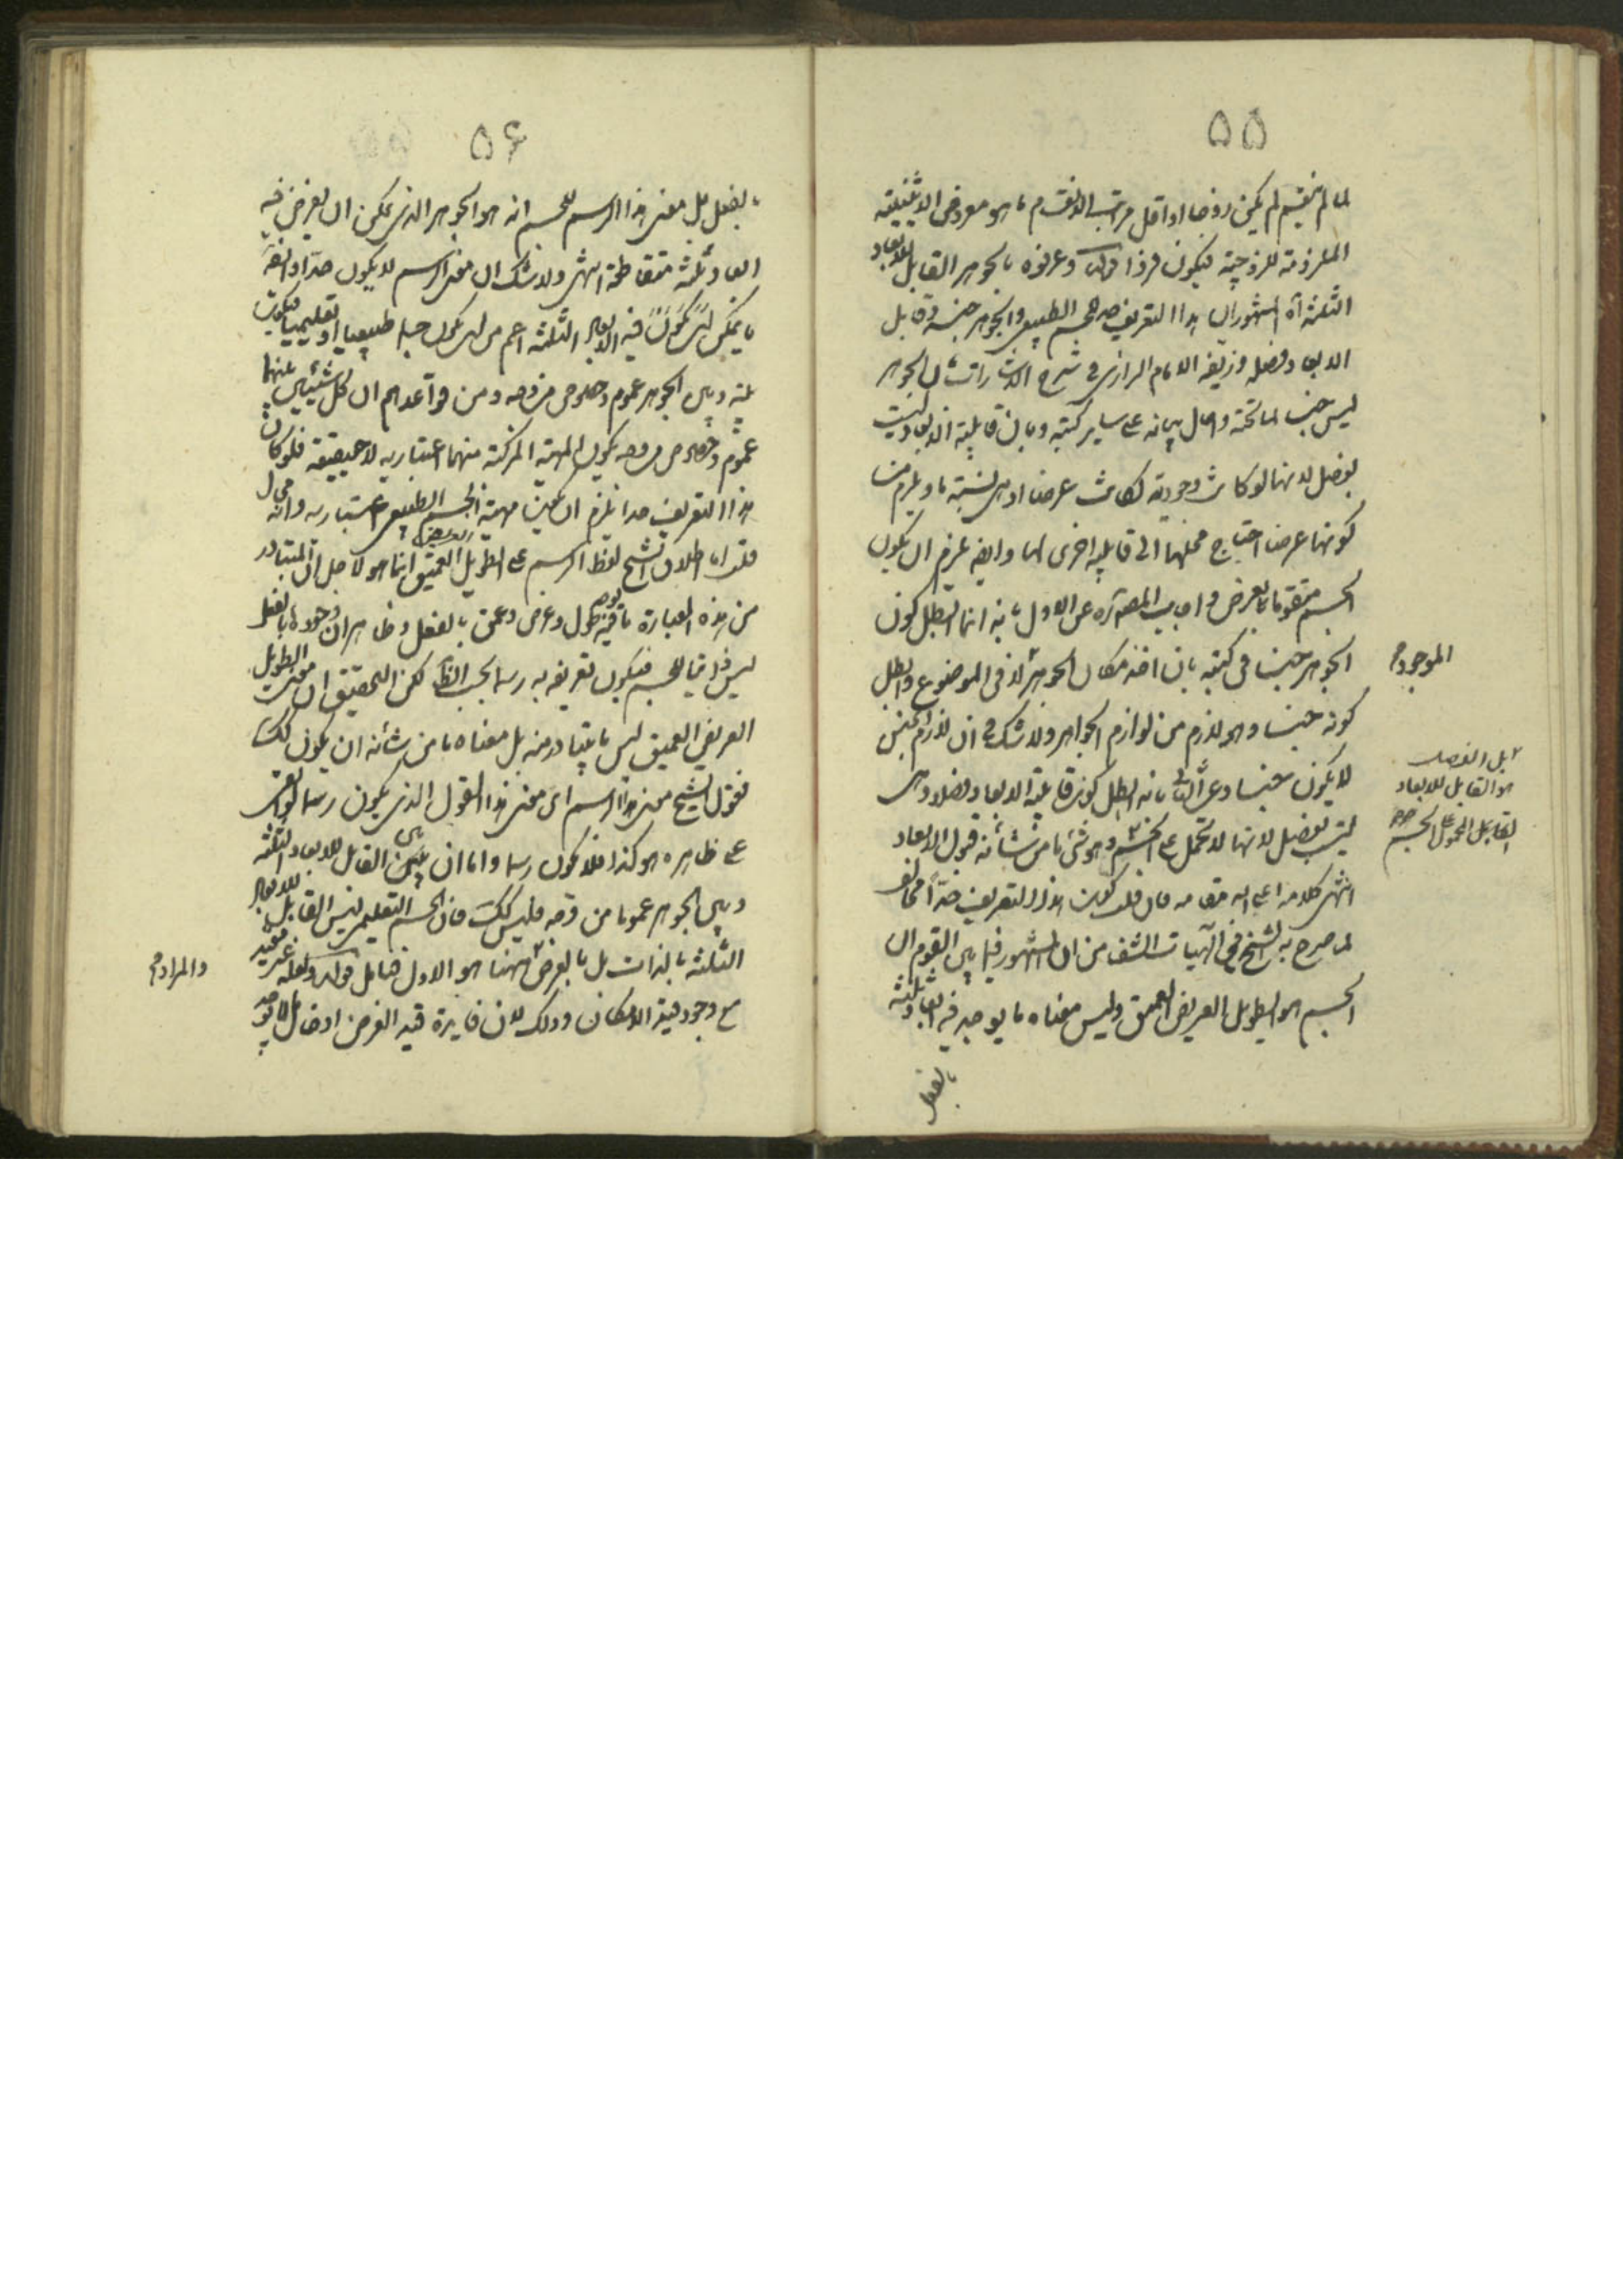 ۵۵
لما لم ينقسم لم يكن زوجا او اقل مراتب الانقسام ما هو معروض الاثنينية
الملزومة للزوجية فيكون فردا قوله وعرفوه بالجوهر القابل للابعاد
الثلثة آه المشهور ان هذا التعريف حد للجسم الطبيعى والجوهر جنسه وقابل
الابعاد فصله وزيفه الامام الرازى فى شرح الاشارات بان الجوهر
ليس جنسا لما تحته واحال بيانه على ساير كتبه وبان قابلية الابعاد ليست
بفصل لانها لو كانت وجودية لكانت عرضا اذ هى نسبة ما ويلزم من
كونها عرضا احتياج محلها الى قابلية اخرى لها وايضا يلزم ان يكون
الجسم متقوما بالعرض واجاب المص ره عن الاول بانه انما ابطل كون
الجوهر جنسا فى كتبه بان اخذ مكان الجوهر لا فى الموضوع وابطل
الموجود
كونه جنسا وهو لازم من لوازم الجواهر ولا شك فى ان لازم الجنس
لا يكون جنسا وعن الثانى بانه ابطل كون قابلية الابعاد فصلا وهى
بل الفصل
هو القابل للابعاد
القابل المحمول على الجسم
ليست بفصل لانها لا تحمل على الجسم وهو شئ ما من شأنه قبول الابعاد
انتهى كلامه اعلى الله مقامه فان قلت كون هذا التعريف حدّاً مخالف
لما صرح به الشيخ فى الهيات الشفا من ان المشهور فيما بين القوم ان
الجسم هو الطويل العريض العميق وليس معناه ما يوجد فيه ابعاد ثلثة
بالفعل
۵۶
بالفعل بل معنى هذا الرسم للجسم انه هو الجوهر الذى يمكن ان يفرض فيه
ابعاد ثلثة متقاطعة انتهى ولا شك ان معنى الرسم لا يكون حدّا وايضا
ما يمكن ان يكون فيه الابعاد الثلثة اعم من ان يكون جسما طبيعيا او تعليميا فيكون
بينه وبين الجوهر عموم وخصوص من وجه ومن قواعدهم ان كل شيئين بينهما
عموم وخصوص من وجه يكون المهية المركبة منهما اعتبارية لا حقيقية فلو كان
هذا التعريف حدا يلزم ان يكون مهية الجسم الطبيعى اعتبارية وانه محال
قلت اما اطلاق الشيخ لفظ الرسم على الطويل العريض العميق انما هو لاجل ان المتبادر
من هذه العبارة ما يوجد فيه طول وعرض وعمق بالفعل وظاهر ان وجودها بالفعل
ليس ذاتيا للجسم فيكون تعريفه به رسما بحسب الظ لكن التحقيق ان معنى الطويل
العريض العميق ليس ما يتبادر منه بل معناه ما من شأنه ان يكون كك
فقول الشيخ معنى هذا الرسم اى معنى هذا القول الذى يكون رسما لو بقى
على ظاهره هو كذا فلا يكون رسما واما ان بين القابل للابعاد الثلثة
وبين الجوهر عموما من وجه فليس كك فان الجسم التعليمى ليس القابل للابعاد
الثلثة بالذات بل بالعرض ههنا هو الاول فتامل قوله ولعله غير مفيد
والمراد
مع وجود قيد الامكان وذلك لان فايدة قيد الفرض ادخال ما لا يوجد